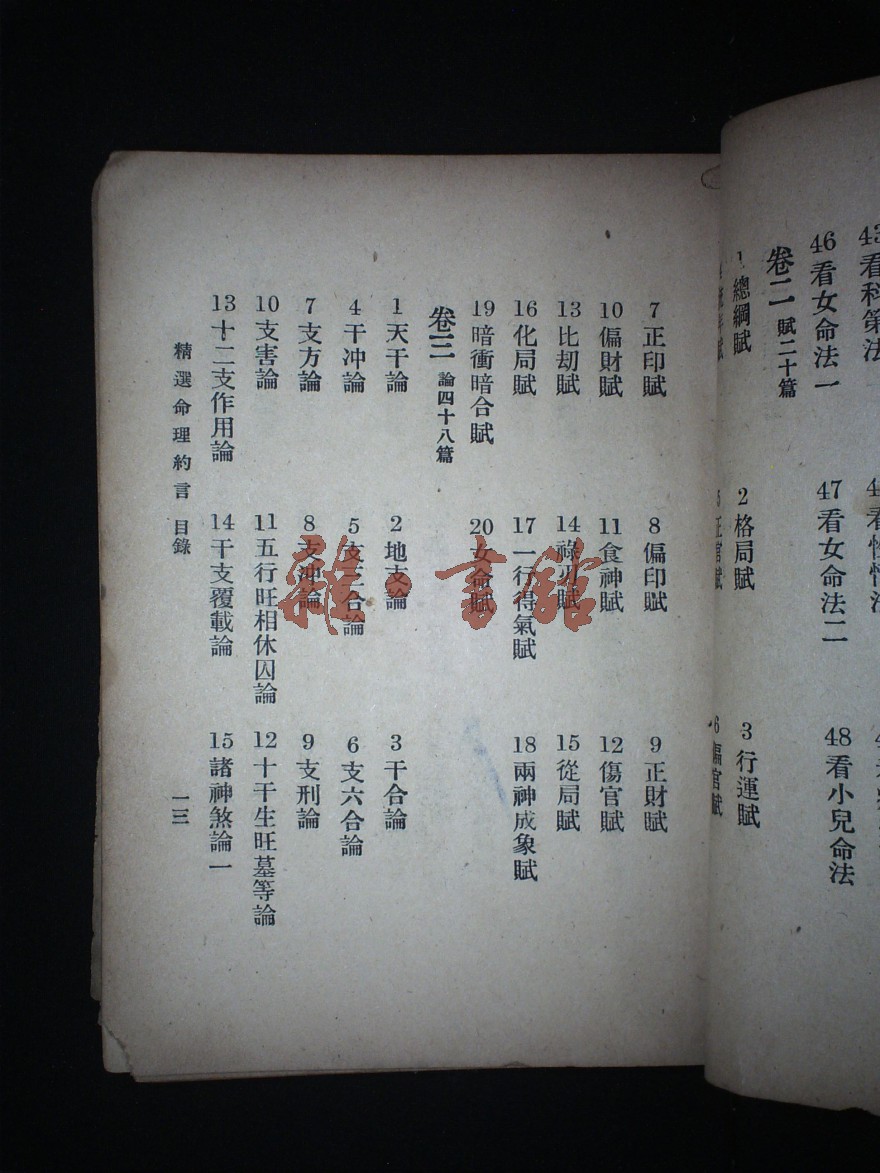 43看科第法
46看女命法一
47看女命法二
48看小兒命法
卷二 賦二十篇
1總綱賦
2格局賦
3行運賦
5正官賦
6偏官賦
7正印賦
8偏印賦
9正財賦
10偏財賦
11食神賦
12傷官賦
13比劫賦
14祿刃賦
15從局賦
16化局賦
17一行得氣賦
18兩神成象賦
19暗衝暗合賦
20女命賦
卷三 論四十八篇
1天干論
2地支論
3干合論
4干冲論
5支三合論
6支六合論
7支方論
8支冲論
9支刑論
10支害論
11五行旺相休囚論
12十干生旺墓等論
13十二支作用論
14干支覆載論
15諸神煞論一
精選命理約言 目錄
一三
雜·書館